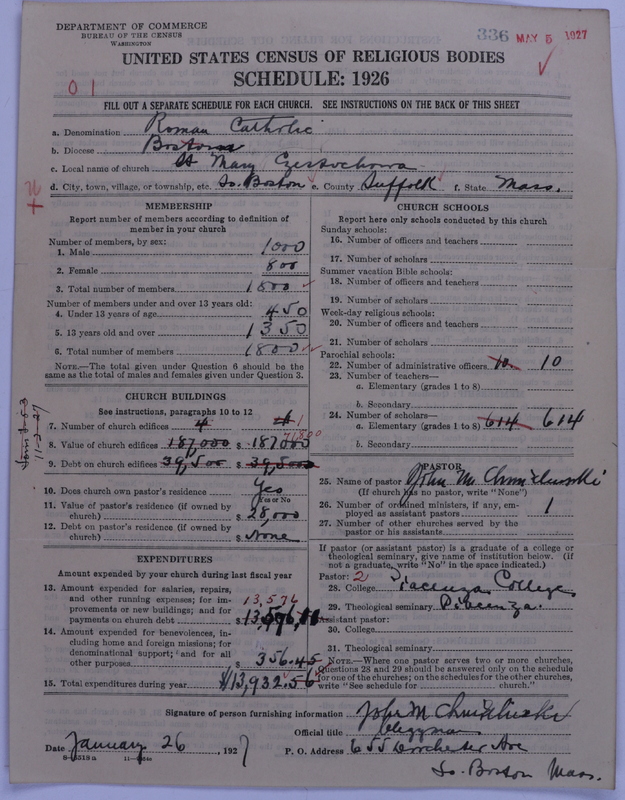 DEPARTMENT OF COMMERCE
BUREAU OF THE CENSUS
WASHINGTON
336 MAY 5 1927
UNITED STATES CENSUS OF RELIGIOUS BODIES
SCHEDULE: 1926
01
FILL OUT A SEPARATE SCHEDULE FOR EACH CHURCH. SEE INSTRUCTIONS ON THE BACK OF THIS SHEET
a. Denomination Roman Catholic
b. Diocese Boston
c. Local name of church St Mary Czestochowa
d. City, town, village, or township, etc. So. Boston e. County Suffolk f. State Mass.
MEMBERSHIP
Report number of members according to definition of
member in your church
Number of members, by sex:
1. Male 1000
2. Female 800
3. Total number of members 1800
Number of members under and over 13 years old:
4. Under 13 years of age 450
5. 13 years old and over 1350
6. Total number of members 1800
NOTE.—The total given under Question 6 should be
same as the total of males and females given under Question 3.
CHURCH BUILDINGS
See instructions, paragraphs 10 to 12
7. Number of church edifices 4 1
8. Value of church edifices 187,000 $ 187000
9. Debt on church edifices 39,500 $ 39,500
10. Does church own pastor's residence Yes
Yes or No
11. Value of pastor's residence (if owned by
church) $ 28,000
12. Debt on pastor's residence (if owned by
church) $ None
EXPENDITURES
Amount expended by your church during last fiscal year
13. Amount expended for salaries, repairs,
and other running expenses; for im- 13,576
provements or new buildings; and for
payments on church debt $ 13,576,11
14. Amount expended for benevolences, in-
cluding home and foreign missions; for
denominational support; and for all
other purposes $ 356.45
15. Total expenditures during year $13,932.56
CHURCH SCHOOLS
Report here only schools conducted by this church
Sunday schools:
16. Number of officers and teachers
17. Number of scholars
Summer vacation Bible schools:
18. Number of officers and teachers
19. Number of scholars
Week-day religious schools:
20. Number of officers and teachers
21. Number of scholars
Parochial schools:
22. Number of administrative officers 10. 10
23. Number of teachers—
a. Elementary (grades 1 to 8)
b. Secondary
24. Number of scholars—
a. Elementary (grades 1 to 8) 614 614
b. Secondary
PASTOR
25. Name of pastor John M. Chmielinski
(If church has no pastor, write "None")
26. Number of ordained ministers, if any, em-
ployed as assistant pastors 1
27. Number of other churches served by the
pastor or his assistants
If pastor (or assistant pastor) is a graduate of a college or
theological seminary, give name of institution below. (if
not a graduate, write "No" in the space indicated.)
Pastor: 2
28. College Piacenza College
29. Theological seminary Piacenza.
Assistant pastor:
30. College
31. Theological seminary
NOTE.—Where one pastor serves two or more churches,
Questions 28 and 29 should be answered only on the schedule
for one of the churches; on the schedules for the other churches,
write "See schedule for church."
Signature of person furnishing information John M Chmielinski
Official title Clergyman
Date January 26, 1927 P. O. Address 655 Dorchester Ave
8—5518 a
So. Boston Mass.